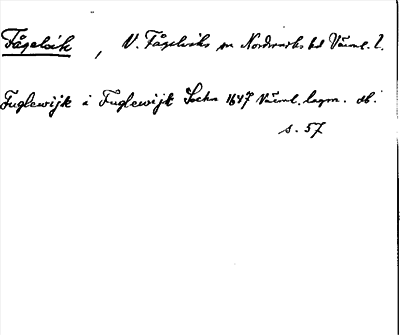 Fågelvik , V. Fågelviks sn Nordmarks hd Värml. l.
Fuglewijk i Fuglewijk Sochn 1647 Värml. lagm. db.
s. 57